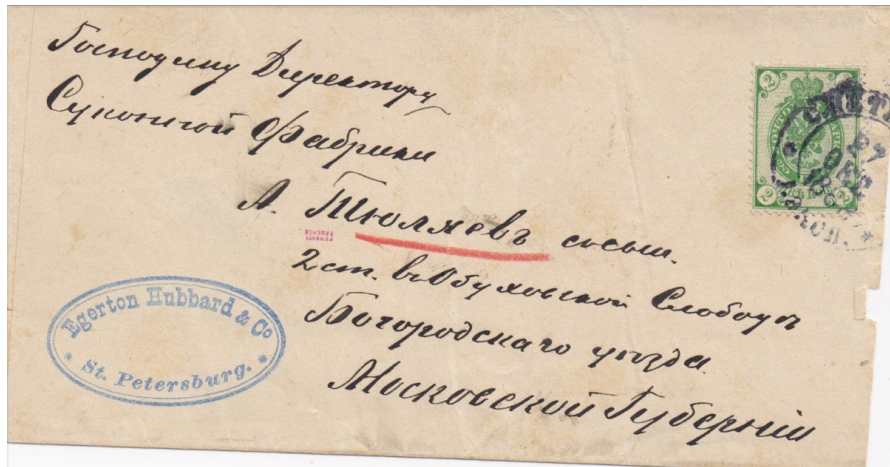 Господину Директору
Суконной Фабрики
А. Тюляевъ сосын.
2 ст. въ Обуховской Слободѣ
Богородскаго уѣзда
Московской Губерніи
Egerton Hubbard & Co
* St. Petersburg. *
2 2
2 2